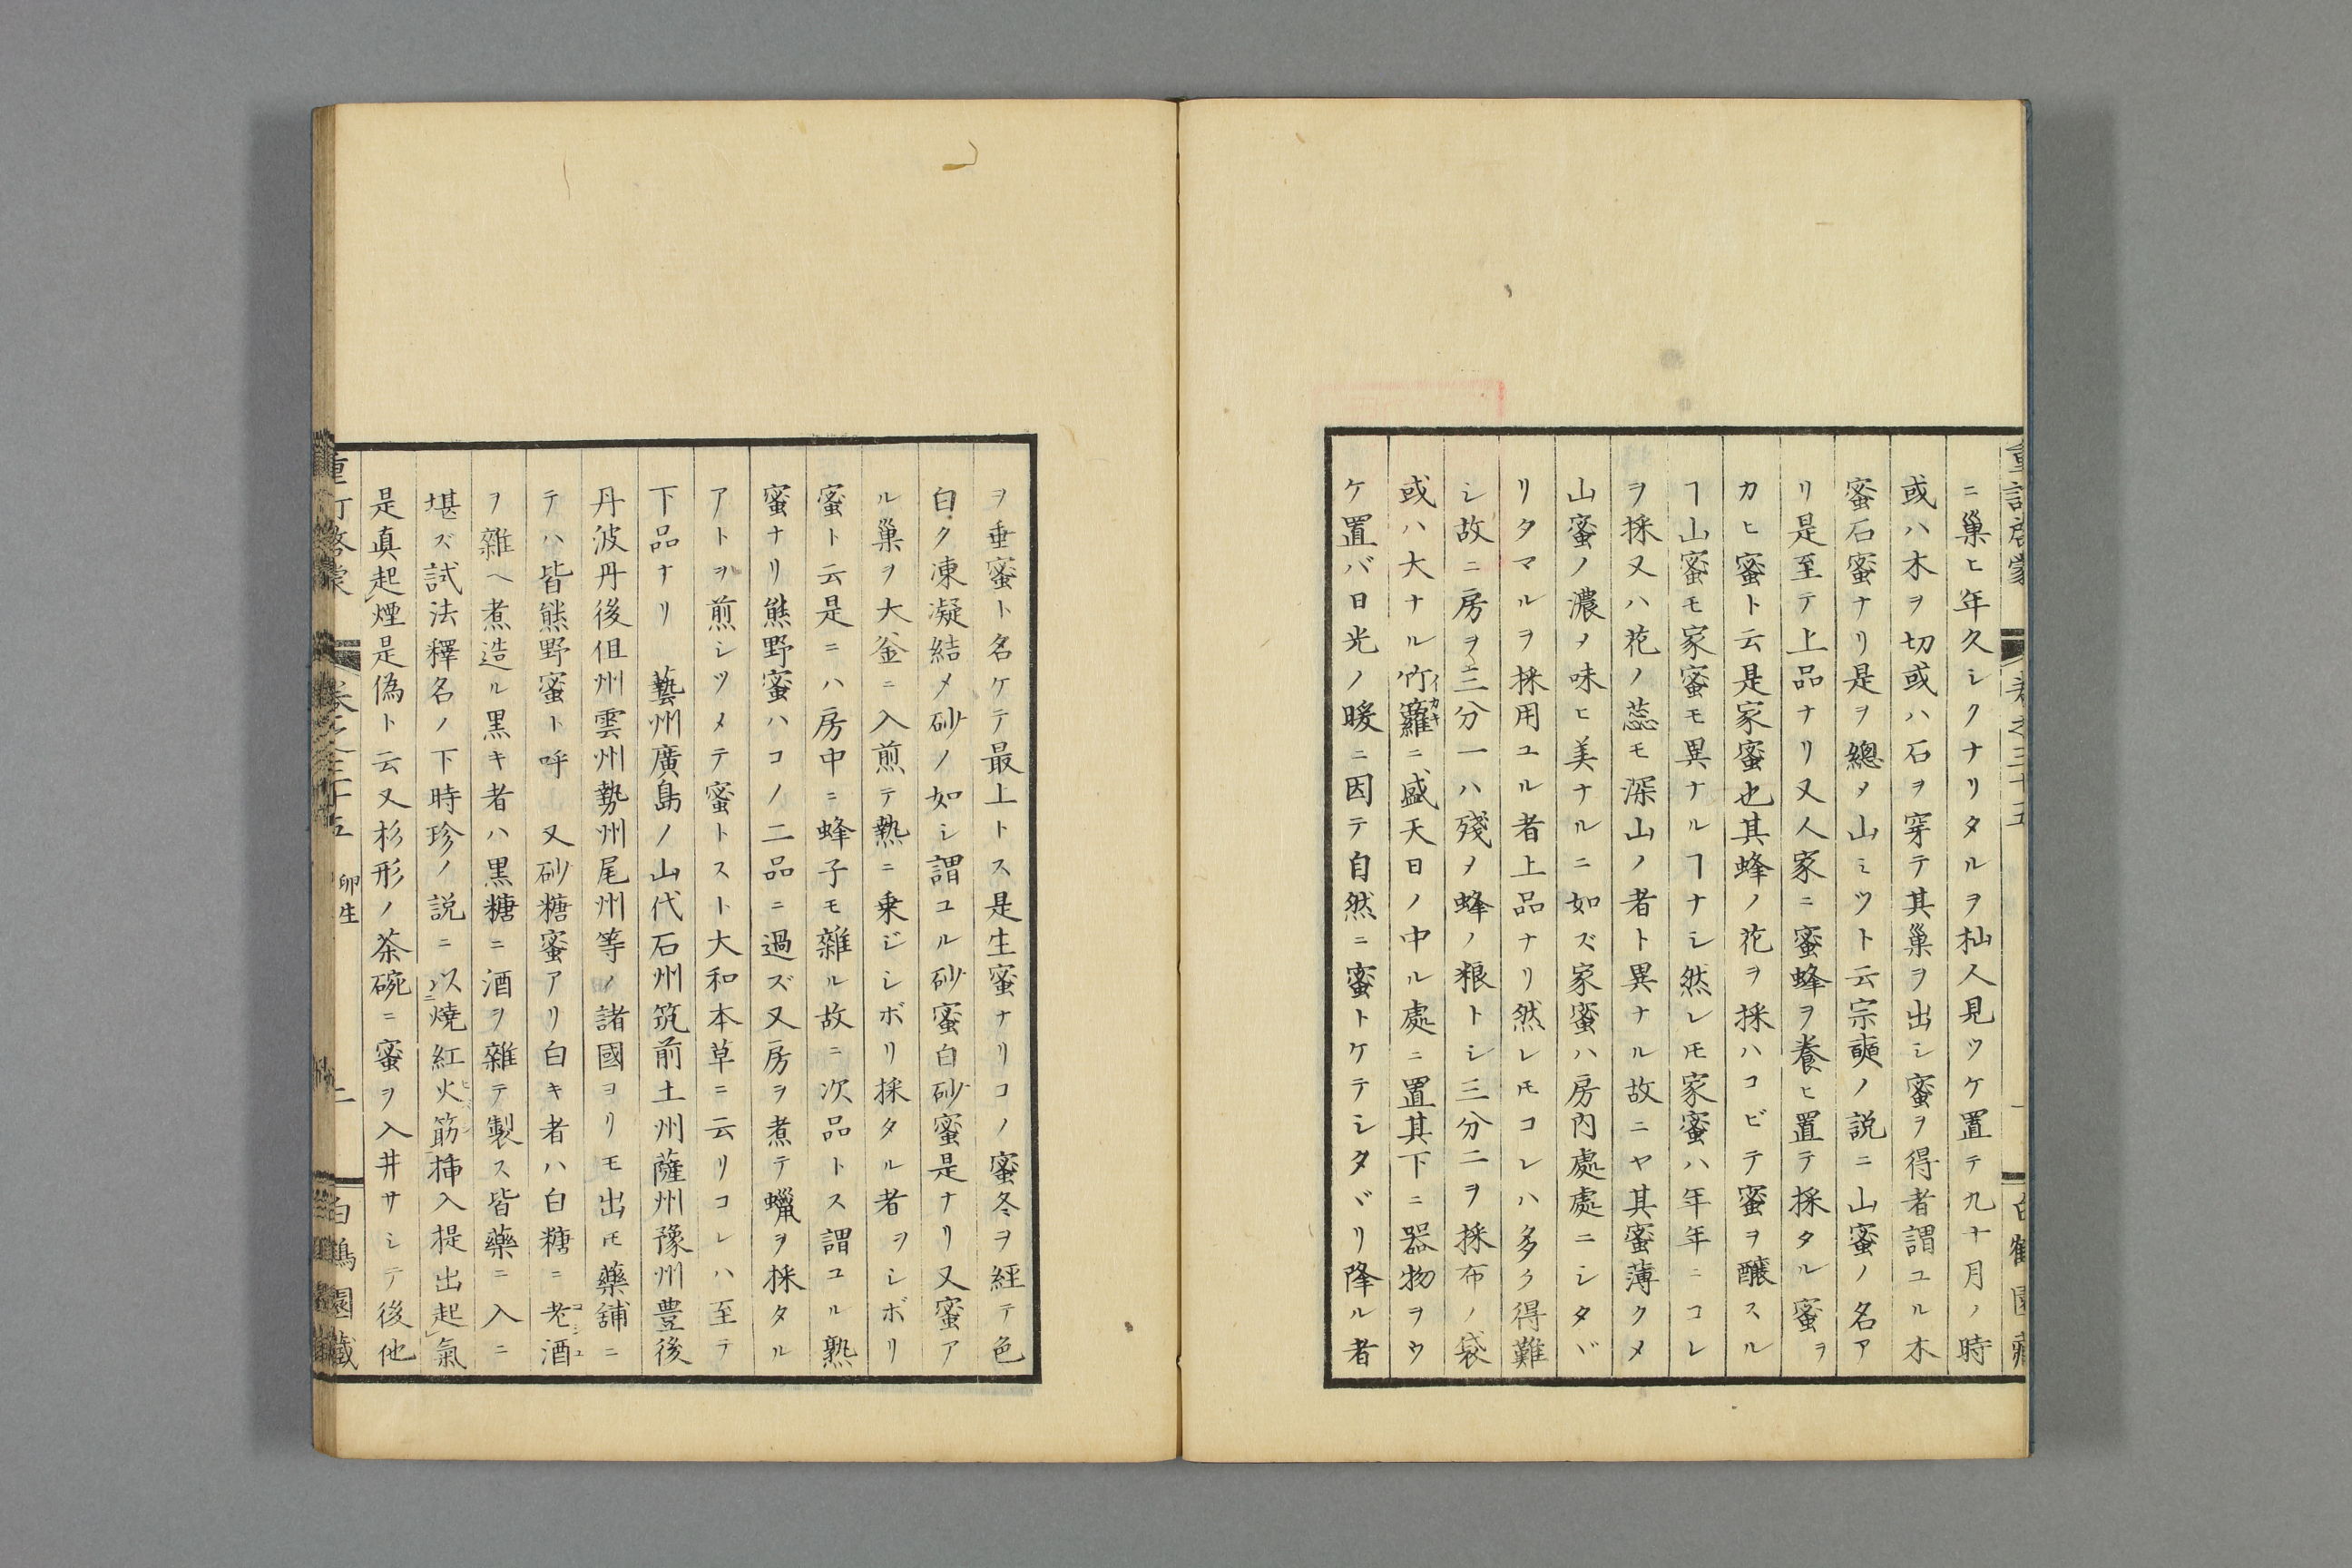 ニ巣ヒ年久シクナリタルヲ杣人見ツケ置テ九十月ノ時
或ハ木ヲ切或ハ石ヲ穿テ其巣ヲ出シ蜜ヲ得者謂ユル木
蜜石蜜ナリ是ヲ總メ山ミツト云宗奭ノ説ニ山蜜ノ名ア
リ是至テ上品ナリ又人家ニ蜜蜂ヲ養ヒ置テ採タル蜜ヲ
カヒ蜜ト云是家蜜也其蜂ノ花ヲ採ハコビテ蜜ヲ醸スル
ヿ山蜜モ家蜜モ異ナルヿナシ然レ𪜈家蜜ハ年年ニコレ
ヲ採又ハ花ノ蕊モ深山ノ者ト異ナル故ニヤ其蜜薄クメ
山蜜ノ濃メ味ヒ美ナルニ如ズ家蜜ハ房内處處ニシタヾ
リタマルヲ採用ユル者上品ナリ然レ𪜈コレハ多ク得難
シ故ニ房ヲ三分一ハ殘メ蜂ノ粮トシ三分二ヲ採布ノ袋
或ハ大ナル竹籮イカキニ盛天日ノ中ル處ニ置其下ニ器物ヲウ
ケ置バ日光ノ暖ニ因テ自然ニ蜜トケテシタヾリ降ル者
ヲ垂蜜ト名ケテ最上トス是生蜜ナリコノ蜜冬ヲ經テ色
白ク凍凝結メ砂ノ如シ謂ユル砂蜜白砂蜜是ナリ又蜜ア
ル巣ヲ大釜ニ入煎テ熱ニ乗ジシボリ採タル者ヲシボリ
蜜ト云是ニハ房中ニ蜂子モ雜ル故ニ次品トス謂ユル熟
蜜ナリ熊野蜜ハコノ二品ニ過ズ又房ヲ煮テ蠟ヲ採タル
アトヲ煎シツメテ蜜トスト大和本草ニ云リコレハ至テ
下品ナリ 藝州廣島ノ山代石州筑前土州薩州豫州豊後
丹波丹後但州雲州勢州尾州等ノ諸國ヨリモ出𪜈藥舗ニ
テハ皆熊野蜜ト呼 又砂糖蜜アリ白キ者ハ白糖ニ老酒
ヲ雜ヘ煮造ル黒キ者ハ黒糖ニ酒ヲ雜テ製ス皆藥ニ入ニ
堪ズ試法釋名ノ下時珍ノ説ニ以燒紅火筯挿入提出起氣
是真起煙是偽ト云又杉形ノ茶碗ニ蜜ヲ入井サシテ後他
卵生
白鶴園藏